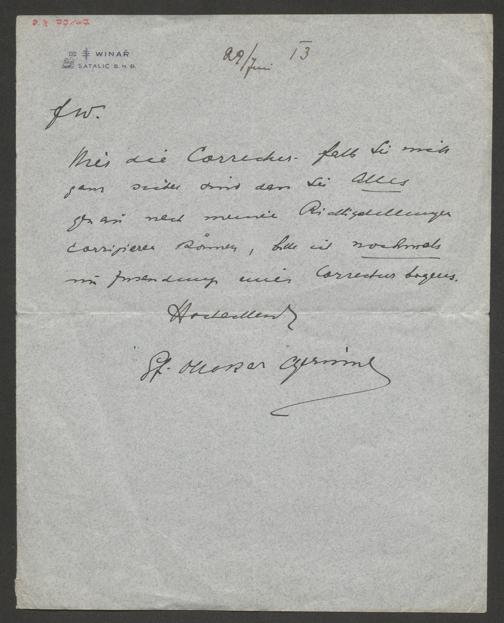 WINAŘ
SATALIC B. H. B.
29/Juni 13
Hier die Correctur. falls Sie nicht
ganz sicher sind dass Sie alles
genau nach meinen Richtigstellungen
corrigieren können, bitte ich nochmals
um Zusendung eines Correcturbogens.
Hochachtend
Gf. Ottokar Czernin